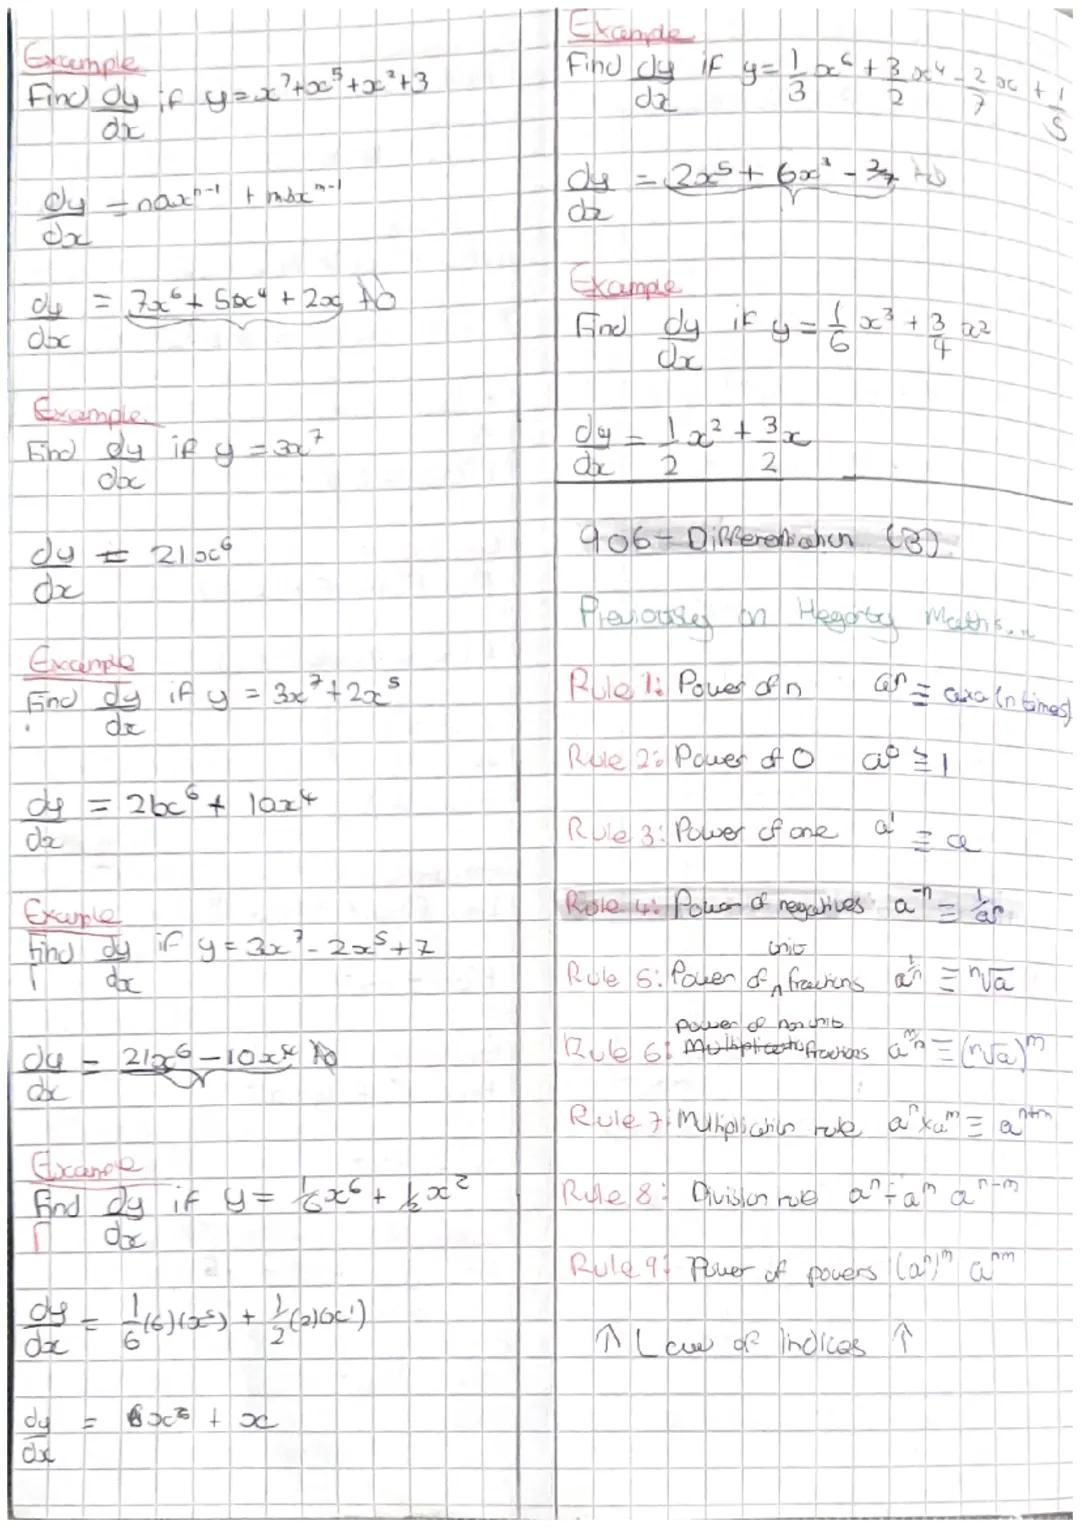 Example
Find dy/dx if y = x⁷+x⁵+x²+3
dy/dx = naxⁿ⁻¹ + mbxᵐ⁻¹
dy/dx = 7x⁶ + 5x⁴ + 2x + 0
Example
Find dy/dx if y = 3x⁷
dy/dx = 21x⁶
Example
Find dy/dx if y = 3x⁷+2x⁵
dy/dx = 21x⁶ + 10x⁴
Example
Find dy/dx if y = 3x⁷ - 2x⁵ + 7
dy/dx = 21x⁶ - 10x⁴ + 0
Example
Find dy/dx if y = 1/6 x⁶ + 1/2 x²
dy/dx = 1/6 (6)(x⁵) + 1/2 (2)(x¹)
dy/dx = x⁵ + x
Example
Find dy/dx if y = 1/3 x⁶ + 3/2 x⁴ - 2/7 x + 1/5
dy/dx = 2x⁵ + 6x³ - 2/7 + 0
Example
Find dy/dx if y = 1/6 x³ + 3/4 x²
dy/dx = 1/2 x² + 3/2 x
906 - Differentiation (3)
Previously on Hegarty Maths...
Rule 1: Power of n aⁿ ≡ axa (n times)
Rule 2: Power of 0 a⁰ ≡ 1
Rule 3: Power of one a¹ ≡ a
Rule 4: Power of negatives a⁻ⁿ ≡ 1/aⁿ
Rule 5: Power of unit fractions a^(1/n) ≡ ⁿ√a
Rule 6: power of non unit fractions a^(m/n) ≡ (ⁿ√a)ᵐ
Rule 7: Multiplication rule aⁿ x aᵐ ≡ aⁿ⁺ᵐ
Rule 8: Division rule aⁿ ÷ aᵐ aⁿ⁻ᵐ
Rule 9: Power of powers (aⁿ)ᵐ aⁿᵐ
↑ Law of Indices ↑